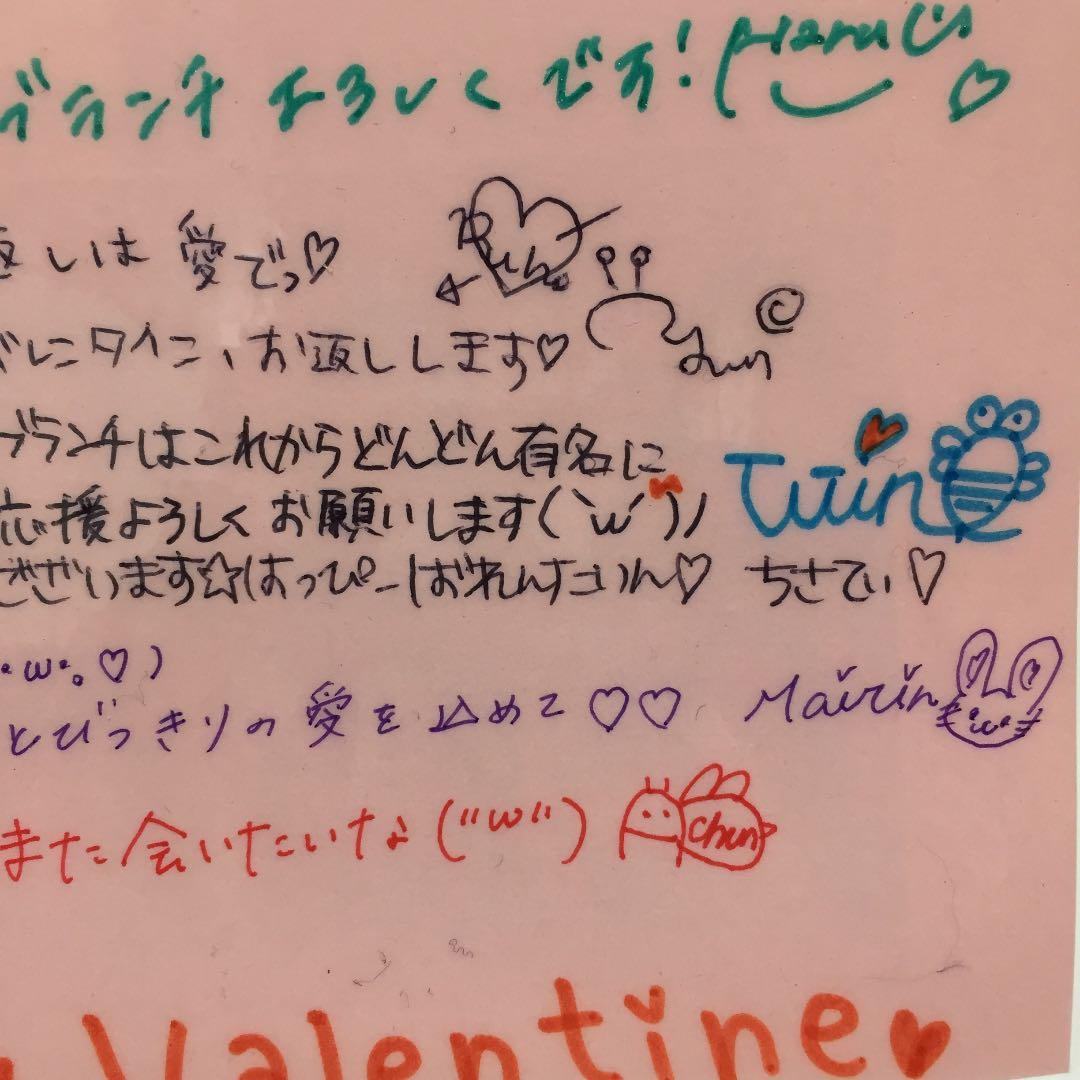 ブランチよろしくです! Haru
返しは 愛でっ♡
バレンタイン、お返しします♡
ブランチはこれからどんどん有名に
応援よろしくお願いします(`ω´)ノ
ございます☆はっぴーばれんたいん♡ ちさてぃ♡
•ω•。♡)
とびっきりの愛を込めて♡♡ Mairin
また会いたいな("ω") Chun
Valentine♥